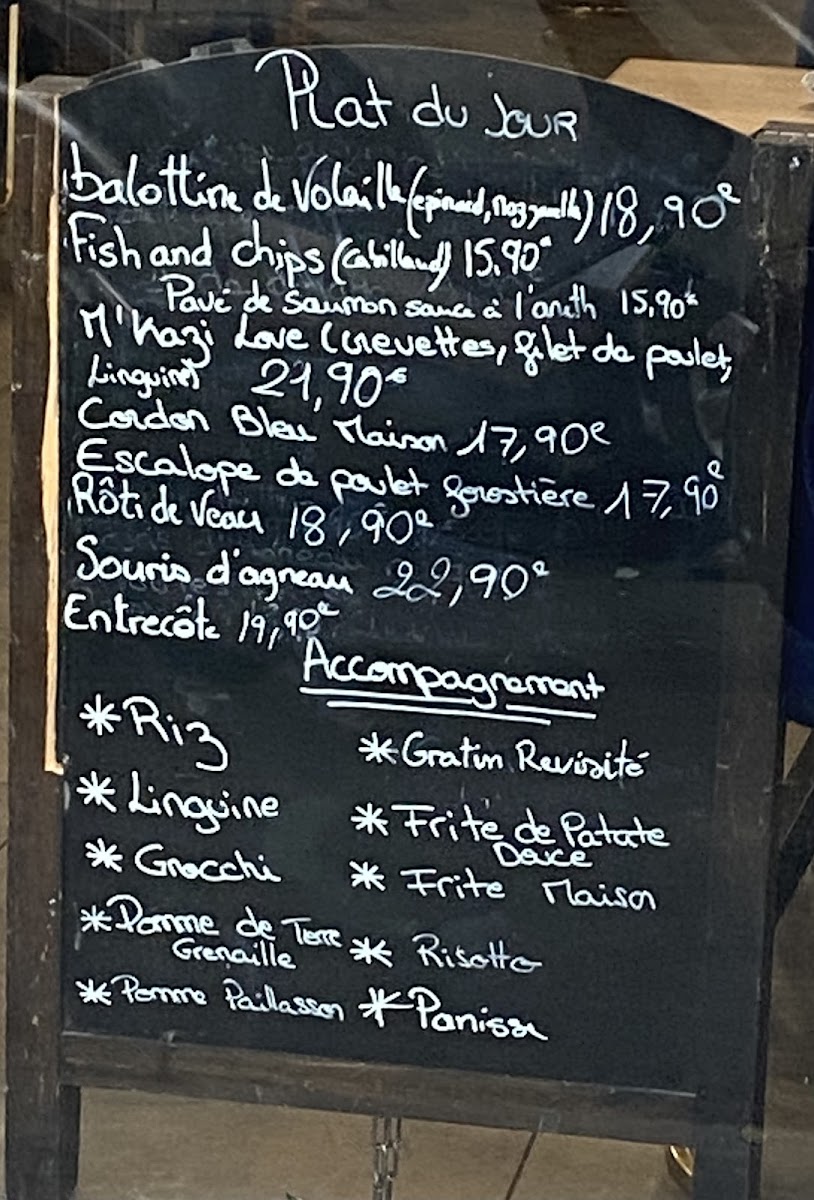 Plat du Jour
balottine de Volaille (epinard, mozzarella) 18,90€
Fish and chips (Cabillaud) 15.90€
Pavé de Saumon sauce à l'aneth 15,90€
M'Kazi Love (crevettes, filet de poulet,
Linguine) 21,90€
Cordon Bleu Maison 17,90€
Escalope de poulet forestière 17,90€
Rôti de Veau 18,90€
Souris d'agneau 22,90€
Entrecôte 19,90€
Accompagnement
* Riz
* Linguine
* Gnocchi
* Pomme de Terre
Grenaille
* Pomme Paillasson
* Gratin Revisité
* Frite de Patate
Douce
* Frite Maison
* Risotto
* Panisse